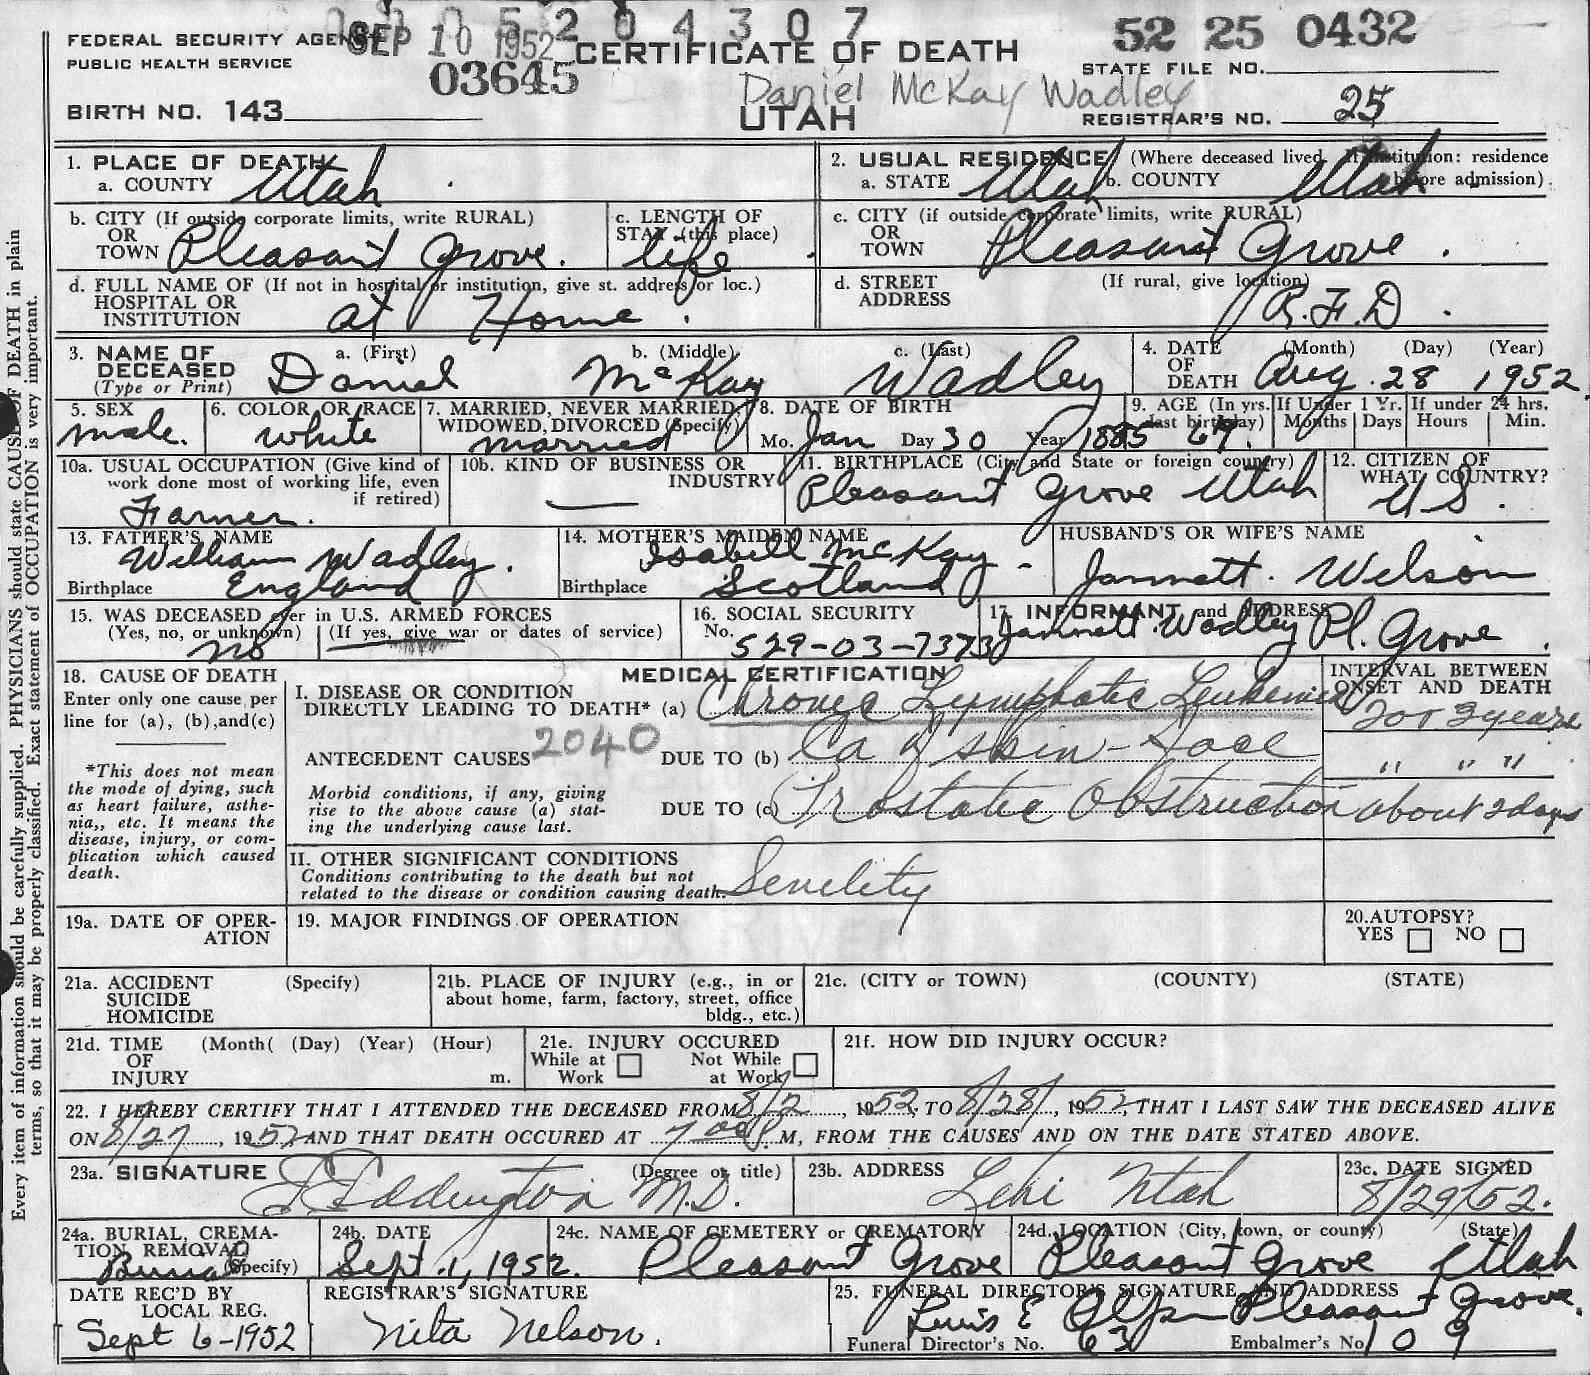 0005204307
FEDERAL SECURITY AGENCY SEP 10 1952 CERTIFICATE OF DEATH 52 25 0432
PUBLIC HEALTH SERVICE 03645 STATE FILE NO.
Daniel McKay Wadley
BIRTH NO. 143 UTAH REGISTRAR'S NO. 25
1. PLACE OF DEATH
a. COUNTY Utah
2. USUAL RESIDENCE (Where deceased lived. If institution: residence before admission).
a. STATE Utah b. COUNTY Utah
b. CITY (If outside corporate limits, write RURAL)
OR
TOWN Pleasant Grove.
c. LENGTH OF
STAY (this place)
life
c. CITY (if outside corporate limits, write RURAL)
OR
TOWN Pleasant Grove.
d. FULL NAME OF (If not in hospital or institution, give st. address or loc.)
HOSPITAL OR
INSTITUTION at Home.
d. STREET (If rural, give location)
ADDRESS R.F.D.
3. NAME OF a. (First) b. (Middle) c. (Last)
DECEASED Daniel McKay Wadley
(Type or Print)
4. DATE (Month) (Day) (Year)
OF
DEATH Aug. 28 1952
5. SEX
male.
6. COLOR OR RACE
white
7. MARRIED, NEVER MARRIED,
WIDOWED, DIVORCED (Specify)
married
8. DATE OF BIRTH
Mo. Jan Day 30 Year 1885
9. AGE (In yrs. last birthday) 67.
If Under 1 Yr. If under 24 hrs.
Months Days Hours Min.
10a. USUAL OCCUPATION (Give kind of
work done most of working life, even
if retired)
Farmer.
10b. KIND OF BUSINESS OR
INDUSTRY
—
11. BIRTHPLACE (City and State or foreign country)
Pleasant Grove Utah
12. CITIZEN OF
WHAT COUNTRY?
U S.
13. FATHER'S NAME
William Wadley.
Birthplace England
14. MOTHER'S MAIDEN NAME
Isabell McKay
Birthplace Scotland
HUSBAND'S OR WIFE'S NAME
Jannett. Wilson
15. WAS DECEASED ever in U.S. ARMED FORCES
(Yes, no, or unknown) (If yes, give war or dates of service)
no
16. SOCIAL SECURITY
No. 529-03-7373
17. INFORMANT and ADDRESS
Jannett Wadley Pl. Grove.
18. CAUSE OF DEATH
Enter only one cause per
line for (a), (b), and (c)
*This does not mean
the mode of dying, such
as heart failure, asthe-
nia,, etc. It means the
disease, injury, or com-
plication which caused
death.
MEDICAL CERTIFICATION
INTERVAL BETWEEN
ONSET AND DEATH
I. DISEASE OR CONDITION
DIRECTLY LEADING TO DEATH* (a) Chronic Lymphatic Leukemia 2 or 3 years
ANTECEDENT CAUSES 2040 DUE TO (b) Ca of skin-face " " "
Morbid conditions, if any, giving
rise to the above cause (a) stat-
ing the underlying cause last.
DUE TO (c) Prostatic Obstruction about 2 days
II. OTHER SIGNIFICANT CONDITIONS
Conditions contributing to the death but not
related to the disease or condition causing death. Senility
19a. DATE OF OPER-
ATION
19. MAJOR FINDINGS OF OPERATION
20. AUTOPSY?
YES NO
21a. ACCIDENT (Specify)
SUICIDE
HOMICIDE
21b. PLACE OF INJURY (e.g., in or
about home, farm, factory, street, office
bldg., etc.)
21c. (CITY or TOWN) (COUNTY) (STATE)
21d. TIME (Month( (Day) (Year) (Hour)
OF
INJURY m.
21e. INJURY OCCURED
While at Work Not While at Work
21f. HOW DID INJURY OCCUR?
22. I HEREBY CERTIFY THAT I ATTENDED THE DECEASED FROM 8/2, 1952, TO 8/28/, 1952, THAT I LAST SAW THE DECEASED ALIVE
ON 8/27, 1952 AND THAT DEATH OCCURED AT 7:00 P M, FROM THE CAUSES AND ON THE DATE STATED ABOVE.
23a. SIGNATURE (Degree or title)
Eddington M.D.
23b. ADDRESS
Lehi Utah
23c. DATE SIGNED
8/29/52.
24a. BURIAL, CREMA-
TION, REMOVAL
(Specify) Burial
24b. DATE
Sept. 1, 1952.
24c. NAME OF CEMETERY or CREMATORY
Pleasant Grove
24d. LOCATION (City, town, or county) (State)
Pleasant Grove Utah
DATE REC'D BY
LOCAL REG.
Sept 6-1952
REGISTRAR'S SIGNATURE
Nita Nelson.
25. FUNERAL DIRECTOR'S SIGNATURE AND ADDRESS
E Olpin Pleasant Grove.
Funeral Director's No. 63 Embalmer's No. 109
Every item of information should be carefully supplied. PHYSICIANS should state CAUSE OF DEATH in plain
terms, so that it may be properly classified. Exact statement of OCCUPATION is very important.